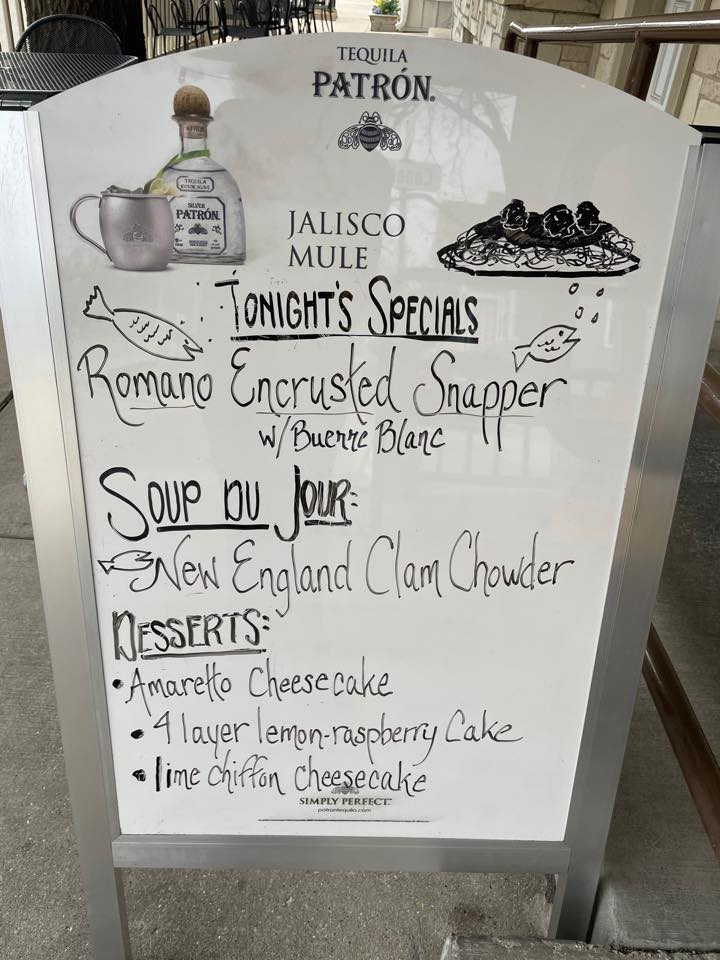 TEQUILA
PATRÓN.
TEQUILA
SILVER
PATRÓN.
JALISCO
MULE
TONIGHT'S SPECIALS
Romano Encrusted Snapper
w/Buerre Blanc
SOUP DU JOUR:
New England Clam Chowder
DESSERTS:
• Amaretto Cheesecake
• 4 layer lemon-raspberry Cake
• lime chiffon cheesecake
SIMPLY PERFECT.
patrontequila.com